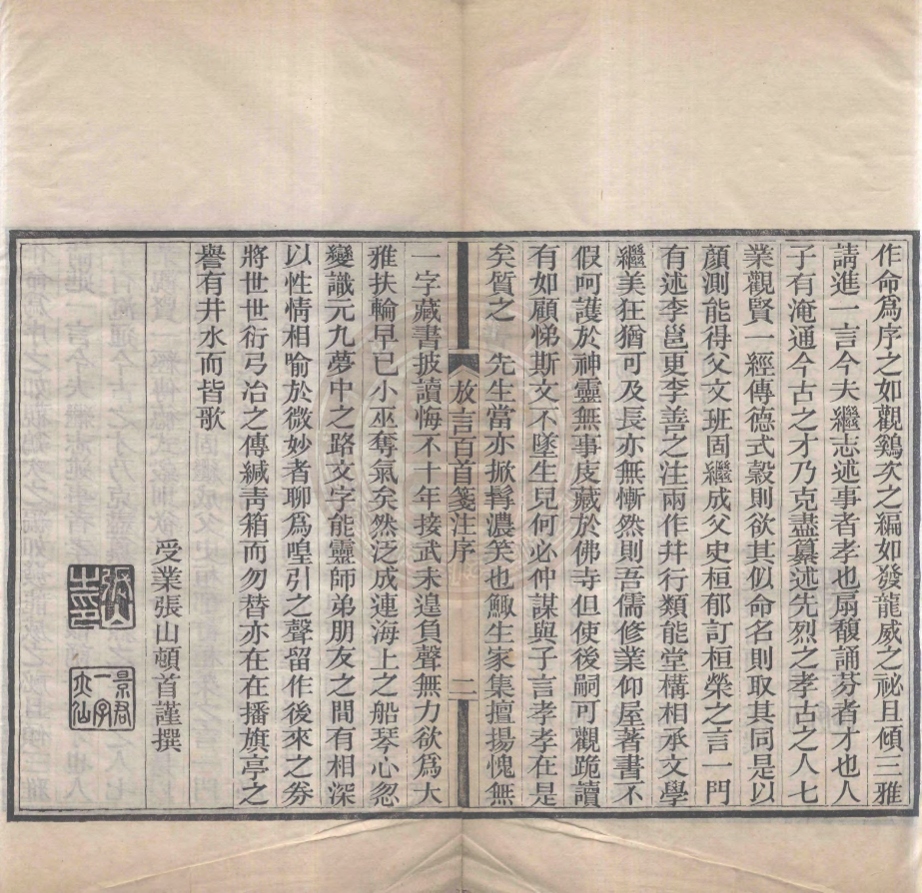 作命爲序之如觀鷄次之編如發龍威之祕且傾三雅
請進一言今夫繼志述事者孝也扇馥誦芬者才也人
子有淹通今古之才乃克盡纂述先烈之孝古之人七
業觀賢一經傳德式穀則欲其似命名則取其同是以
顏測能得父文班固繼成父史桓郁訂桓榮之言一門
有述李邕更李善之注兩作幷行類能堂構相承文學
繼美狂猶可及長亦無慚然則吾儒修業仰屋著書不
假呵護於神靈無事庋藏於佛寺但使後嗣可觀跪讀
有如顧悌斯文不墜生兒何必仲謀與子言孝孝在是
矣質之　先生當亦掀髯濃笑也鯫生家集擅揚愧無
放言百首箋注序　二
一字藏書披讀悔不十年接武未遑負聲無力欲爲大
雅扶輪早已小巫奪氣矣然泛成連海上之船琴心忽
變識元九夢中之路文字能靈師弟朋友之間有相深
以性情相喻於微妙者聊爲喤引之聲留作後來之券
將世世衍弓冶之傳緘靑箱而勿替亦在在播旗亭之
譽有井水而皆歌
受業張山頓首謹撰
張山之印